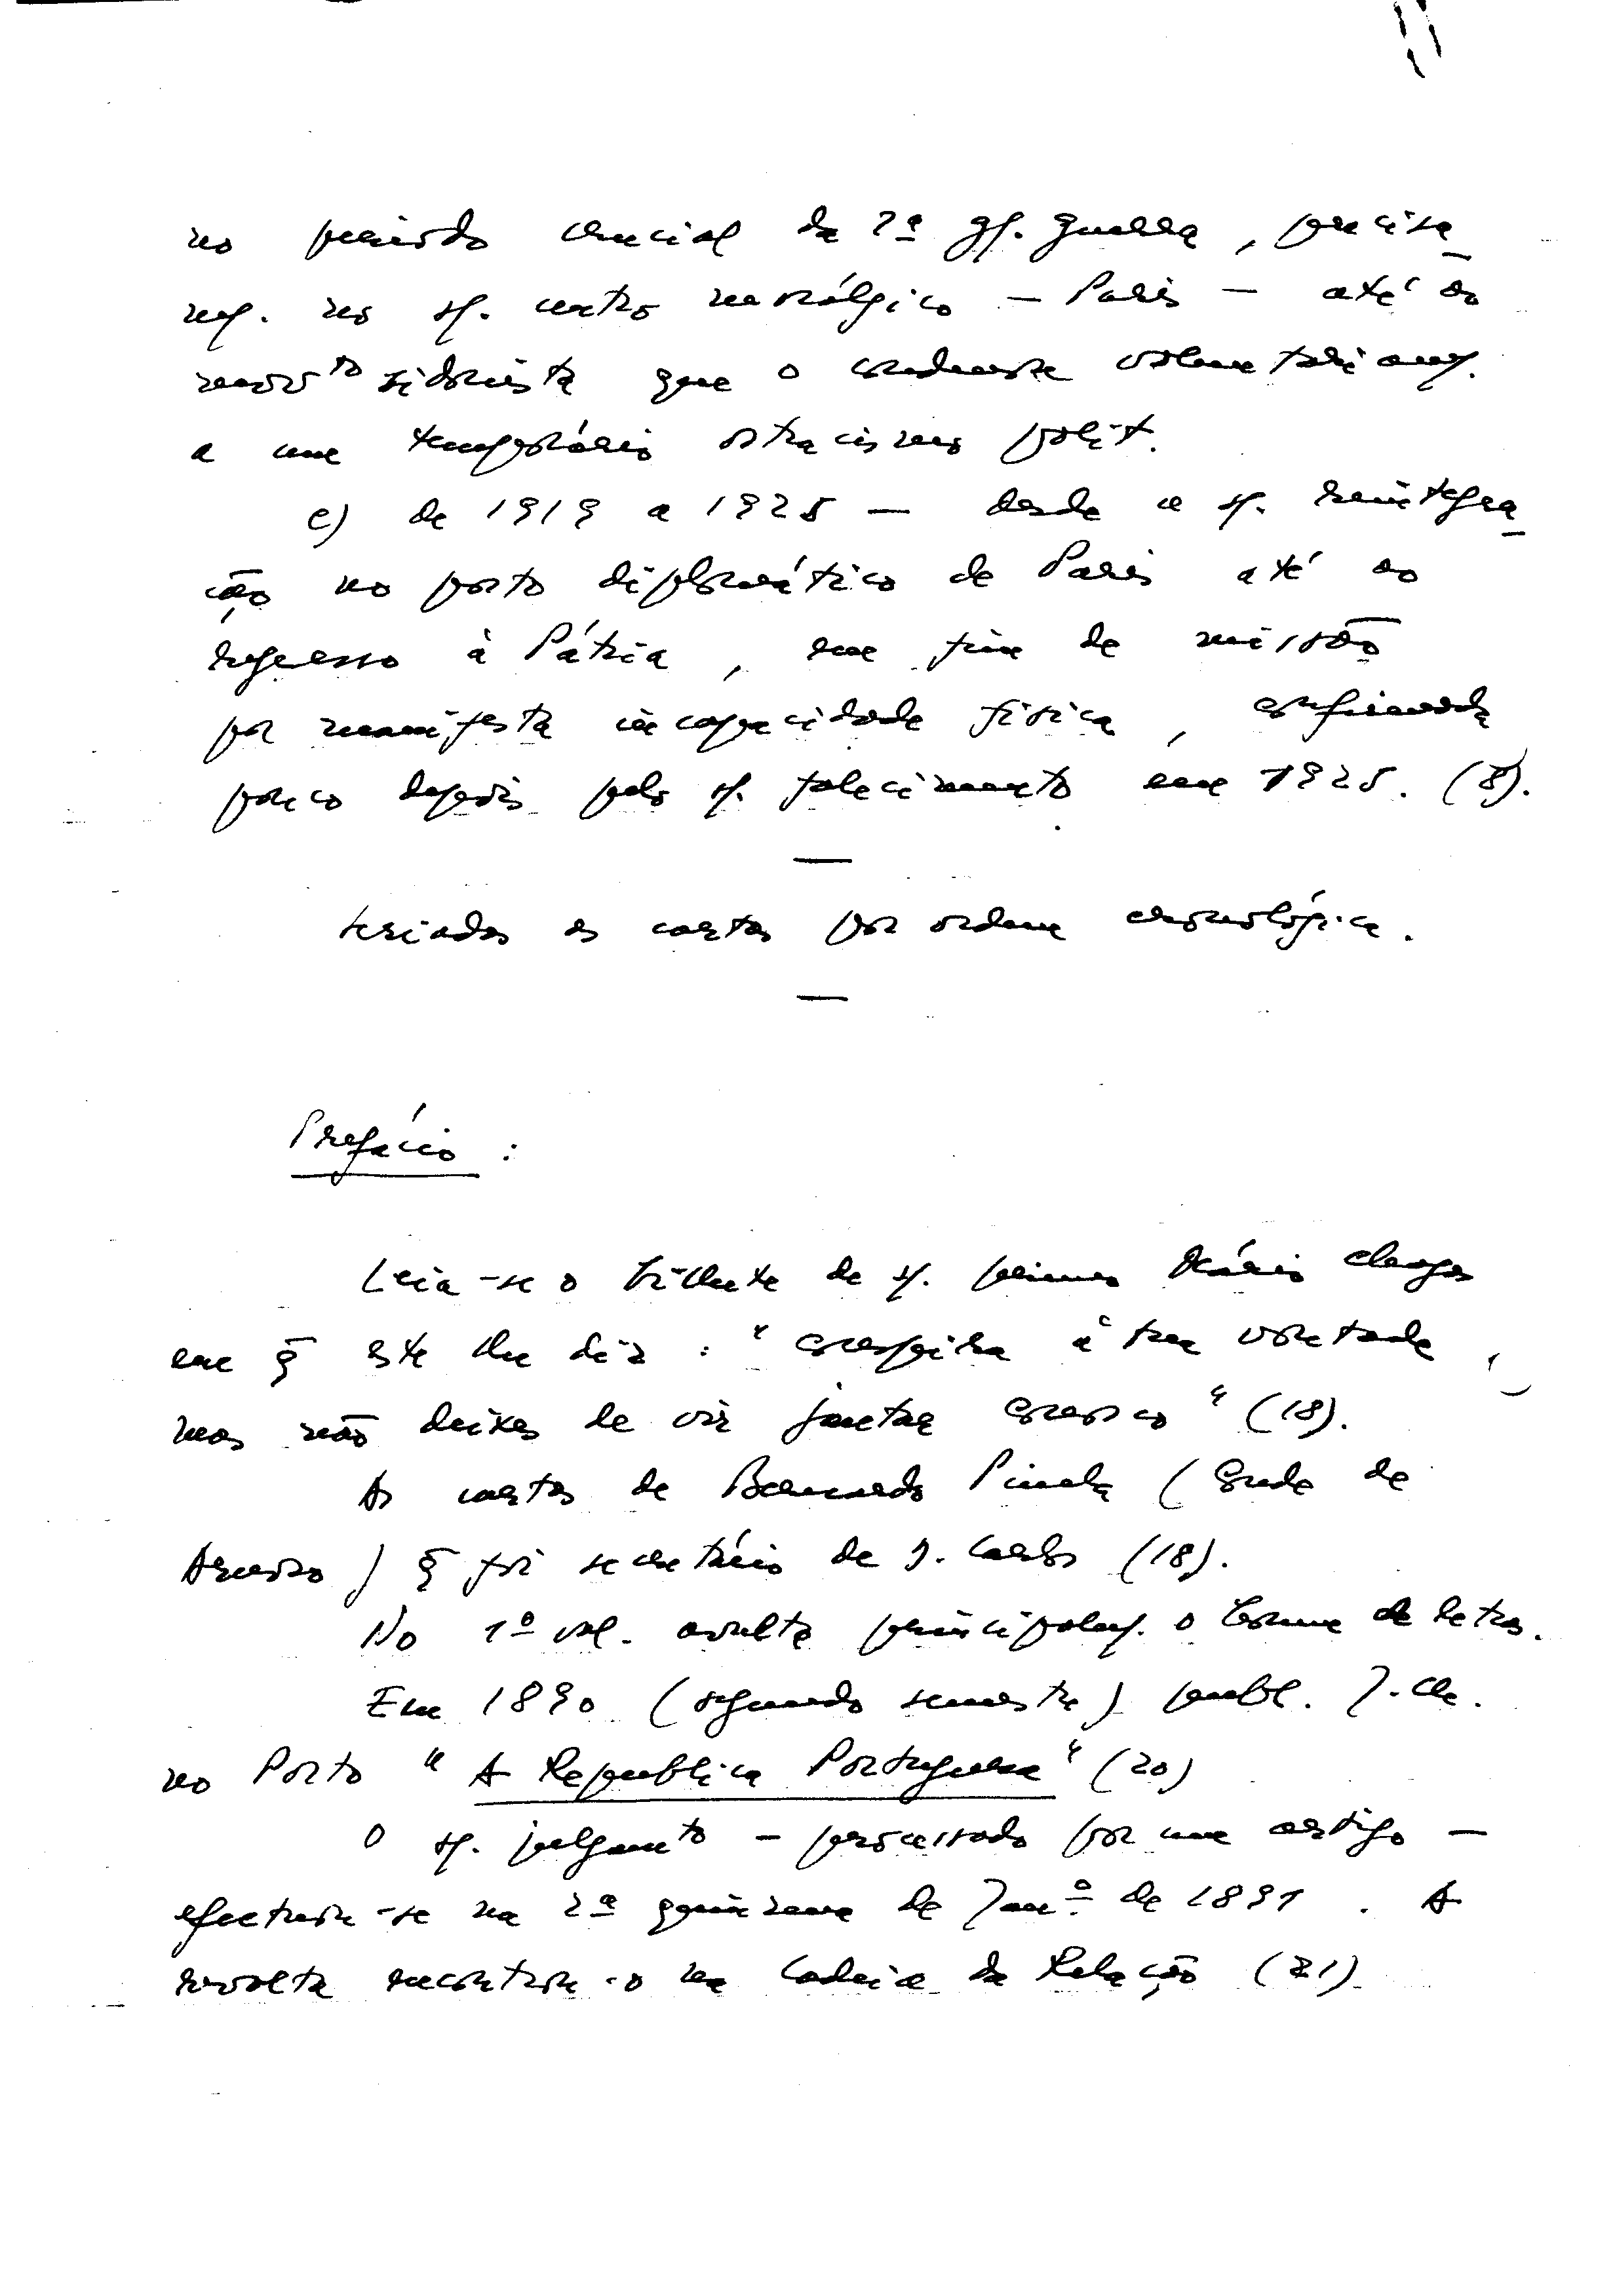 no período crucial da 1ª gr. guerra, precisa_
m/. no s/. centro nevrálgico — Paris — até ao
mov.to sidonista que o condenou voluntariam/.
a um temporário ostracismo polít.
e) de 1919 a 1925 — desde a s/. reintegra_
ção no posto diplomático de Paris até ao
regresso à Pátria, em fim de missão
por manifesta incapacidade física, confirmada
pouco depois pelo s/. falecimento em 1925. (8).
—
seriadas as cartas por ordem cronológica.
—
Prefácio :
Leia-se o bilhete de s/. primo Mário Chagas
em q̄ este lhe diz : "conspira à tua vontade,
mas não deixes de vir jantar connosco" (18).
As cartas de Bernardo Pindela (Conde de
Arnoso) q̄ foi secretário de D. Carlos (18).
No 1º vol. avulta principalm/. o homem de letras.
Em 1890 (segundo semestre) publ. J. Ch.
no Porto "A Republica Portuguesa" (20)
O s/. julgamto — processado por um artigo —
efectuou-se na 2ª quinzena de Janº de 1891. A
revolta encontrou-o na Cadeia da Relação (21)